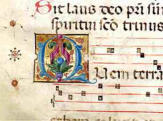 Sit laus deo pr̄i
spiritui sc̄o trinus
QUem terra